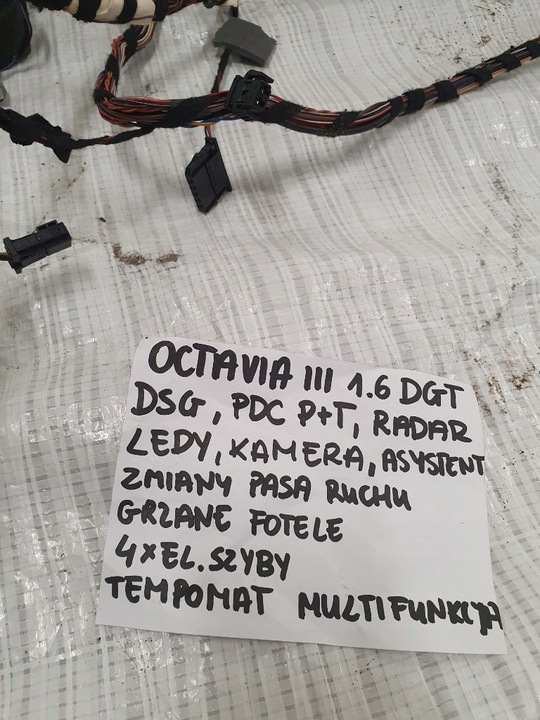 OCTAVIA III 1.6 DGT
DSG, PDC P+T, RADAR
LEDY, KAMERA, ASYSTENT
ZMIANY PASA RUCHU
GRZANE FOTELE
4xEL.SZYBY
TEMPOMAT MULTIFUNKCJA